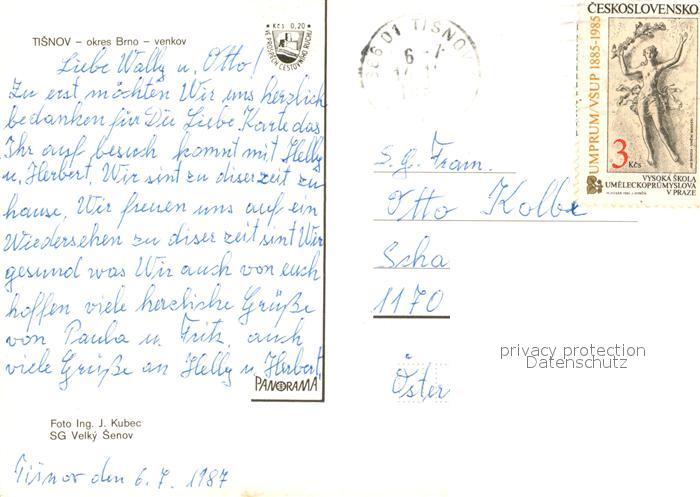 TIŠNOV – okres Brno – venkov
Kčs 0,20
VE PROSPĚCH CESTOVNÍHO RUCHU
Liebe Wally u. Otto!
Zu erst möchten Wir uns herzlich
bedanken für Die Liebe Karte das
Ihr auf besuch komnt mit Helly
u. Herbert. Wir sint zu diser zeit zu
hause. Wir freuen uns auf ein
Wiedersehen zu diser zeit sint Wir
gesund was Wir auch von euch
hoffen viele herzliche Grüße
von Paula u. Fritz. auch
viele Grüße an Helly u. Herbert.
PANORAMA
Foto Ing. J. Kubec
SG Velký Šenov
Tišnov den 6. 7. 1987
666 01 TIŠNOV
ČESKOSLOVENSKO
UMPRUM/VŠUP 1885-1985
3 Kčs
VYSOKÁ ŠKOLA
UMĚLECKOPRŮMYSLOVÁ
V PRAZE
S. g. Fram.
Otto Kolbe
1170
Öster
privacy protection
Datenschutz